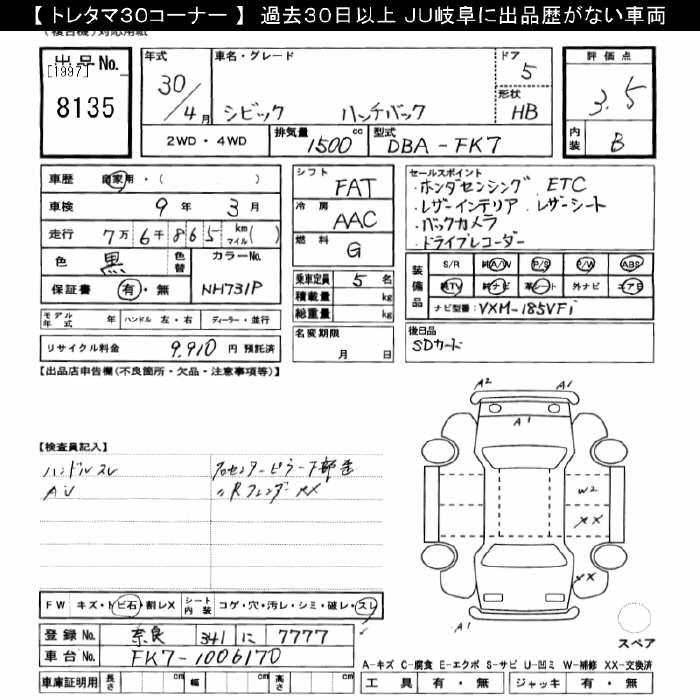 【 トレタマ30コーナー 】 過去30日以上 JU岐阜に出品歴がない車両
出品No.
[1997]
8135
年式
30/4月
車名・グレード
シビック ハッチバック
ドア
5
形状
HB
評価点
3.5
内装
B
2WD・4WD
排気量
1500cc
型式
DBA-FK7
車歴 自家用・( )
車検 9年 3月
走行 7万6千865 km マイル( )
色 黒 色替
カラーNo.
NH731P
保証書 有・無
モデル年式 年 ハンドル 左・右 ディーラー・並行
リサイクル料金 9,910 円 預託済
シフト
FAT
冷房
AAC
燃料
G
乗車定員 5 名
積載量 kg
総重量 kg
名変期限
月 日
セールスポイント
・ホンダセンシング ETC
・レザーインテリア ・レザーシート
・バックカメラ
・ドライブレコーダー
装備品
S/R 純A/W P/S P/W ABS
純TV 純ナビ 革シート 外ナビ エアB
ナビ型番: VXM-185VFi
後日品
SDカード
【出品店申告欄(不良箇所・欠品・注意事項等)】
【検査員記入】
ハンドルスレ
AU
センターピラー下部
RフェンダーXX
A2 A1
W2
XX
XX
A1
スペア
FW キズ・トビ石・割レX シート内装 コゲ・穴・汚レ・シミ・破レ・スレ
登録No. 奈良 341 に 7777
車台No. FK7-1006170
車庫証明用 長さ cm 幅 cm 高さ cm
A-キズ C-腐食 E-エクボ S-サビ U-凹ミ W-補修 XX-交換済
工具 有・無 ジャッキ 有・無